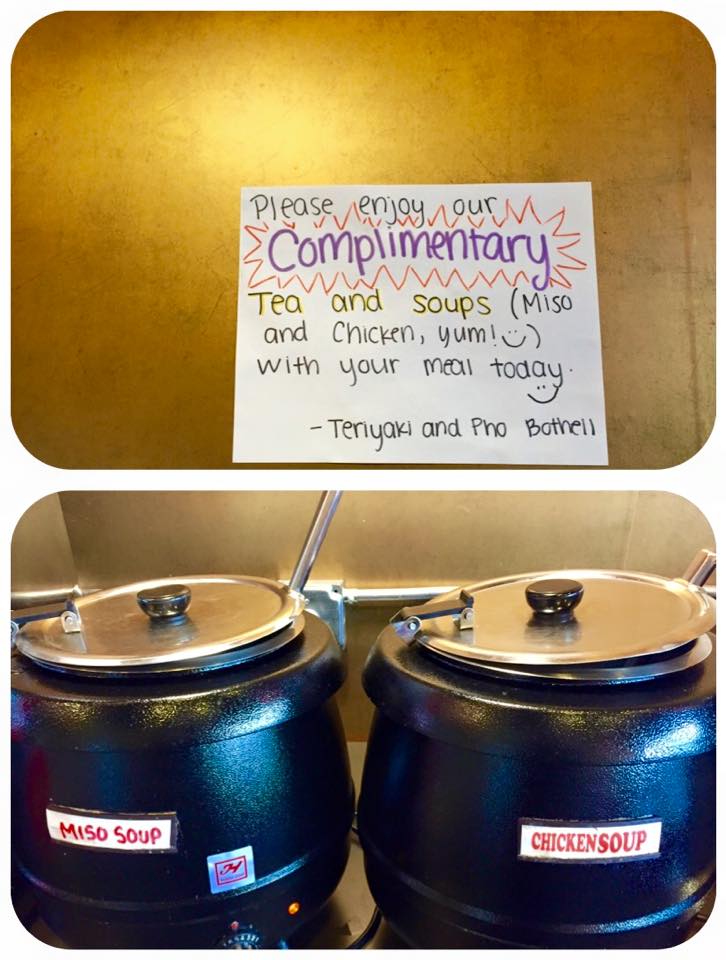 Please enjoy our
Complimentary
Tea and soups (Miso
and Chicken, yum! :))
with your meal today.
:)
- Teriyaki and Pho Bothell
MISO SOUP
CHICKEN SOUP